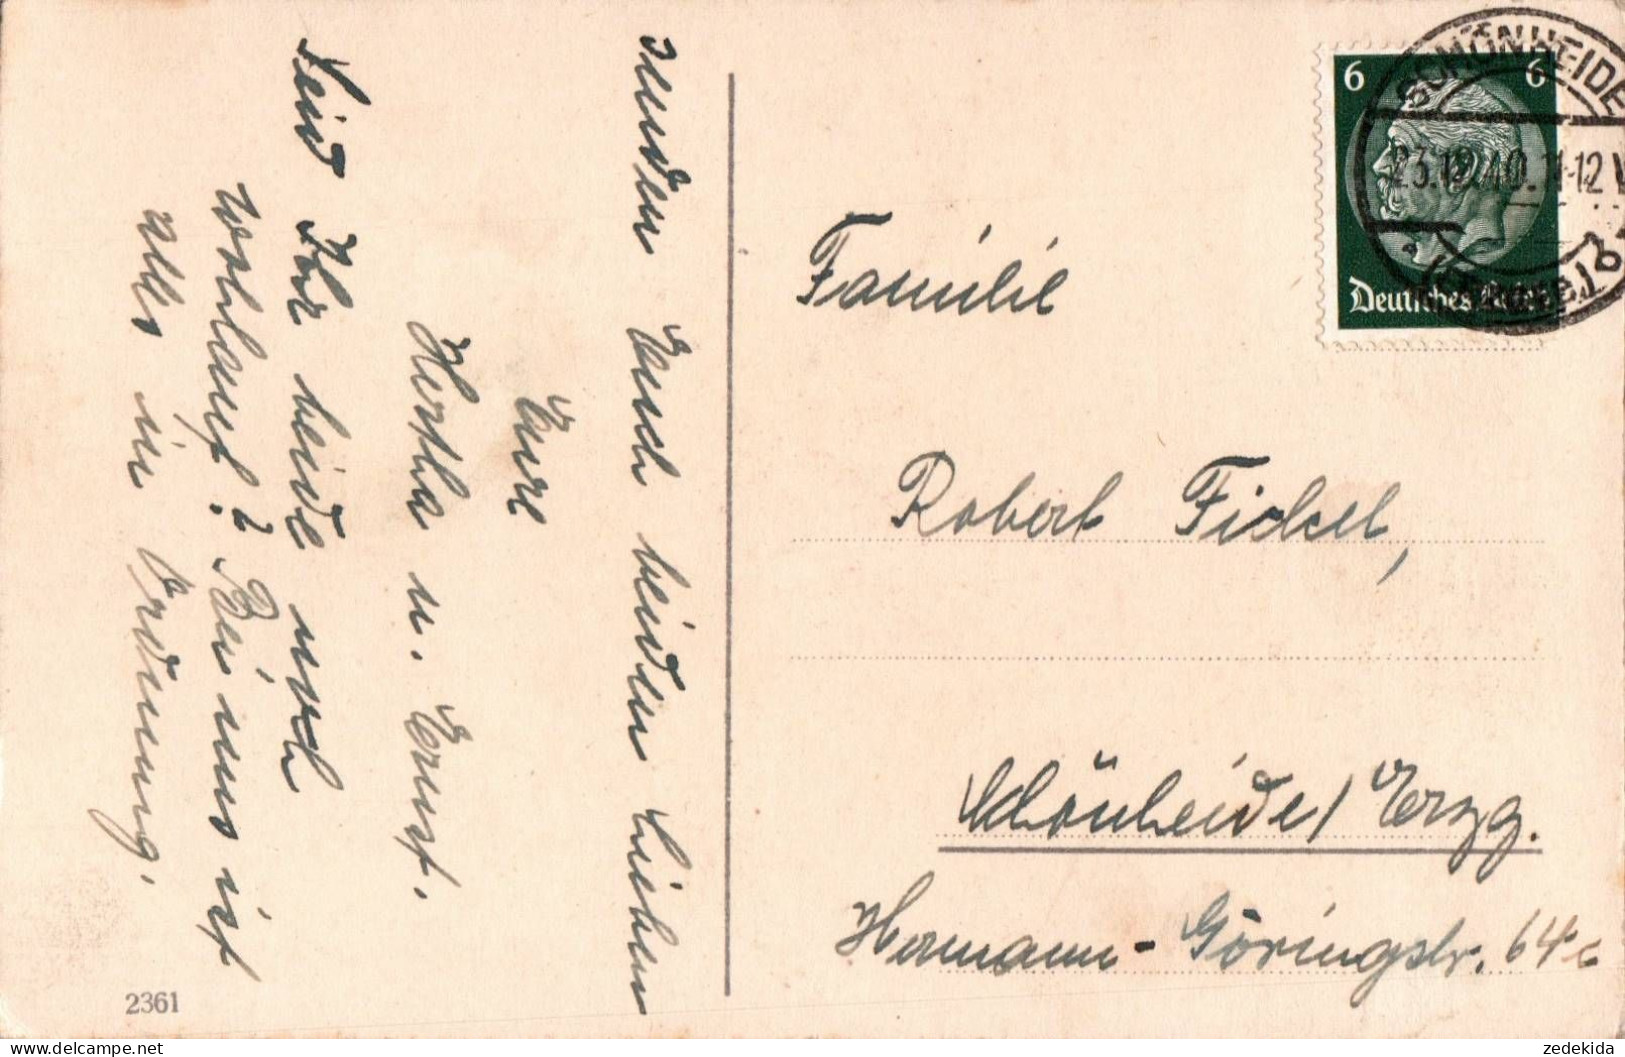 senden Euch beiden Lieben
Eure
Hertha u. Ernst.
Seid Ihr beide noch
wohlauf? Bei uns ist
alles in Ordnung.
2361
6 6
Deutsches Reich
SCHÖNHEIDE
23.12.40. 11-12 V
(ERZGEB.)
Familie
Robert Fickel,
Schönheide/Erzg.
Hermann-Göringstr. 64c
zedekida